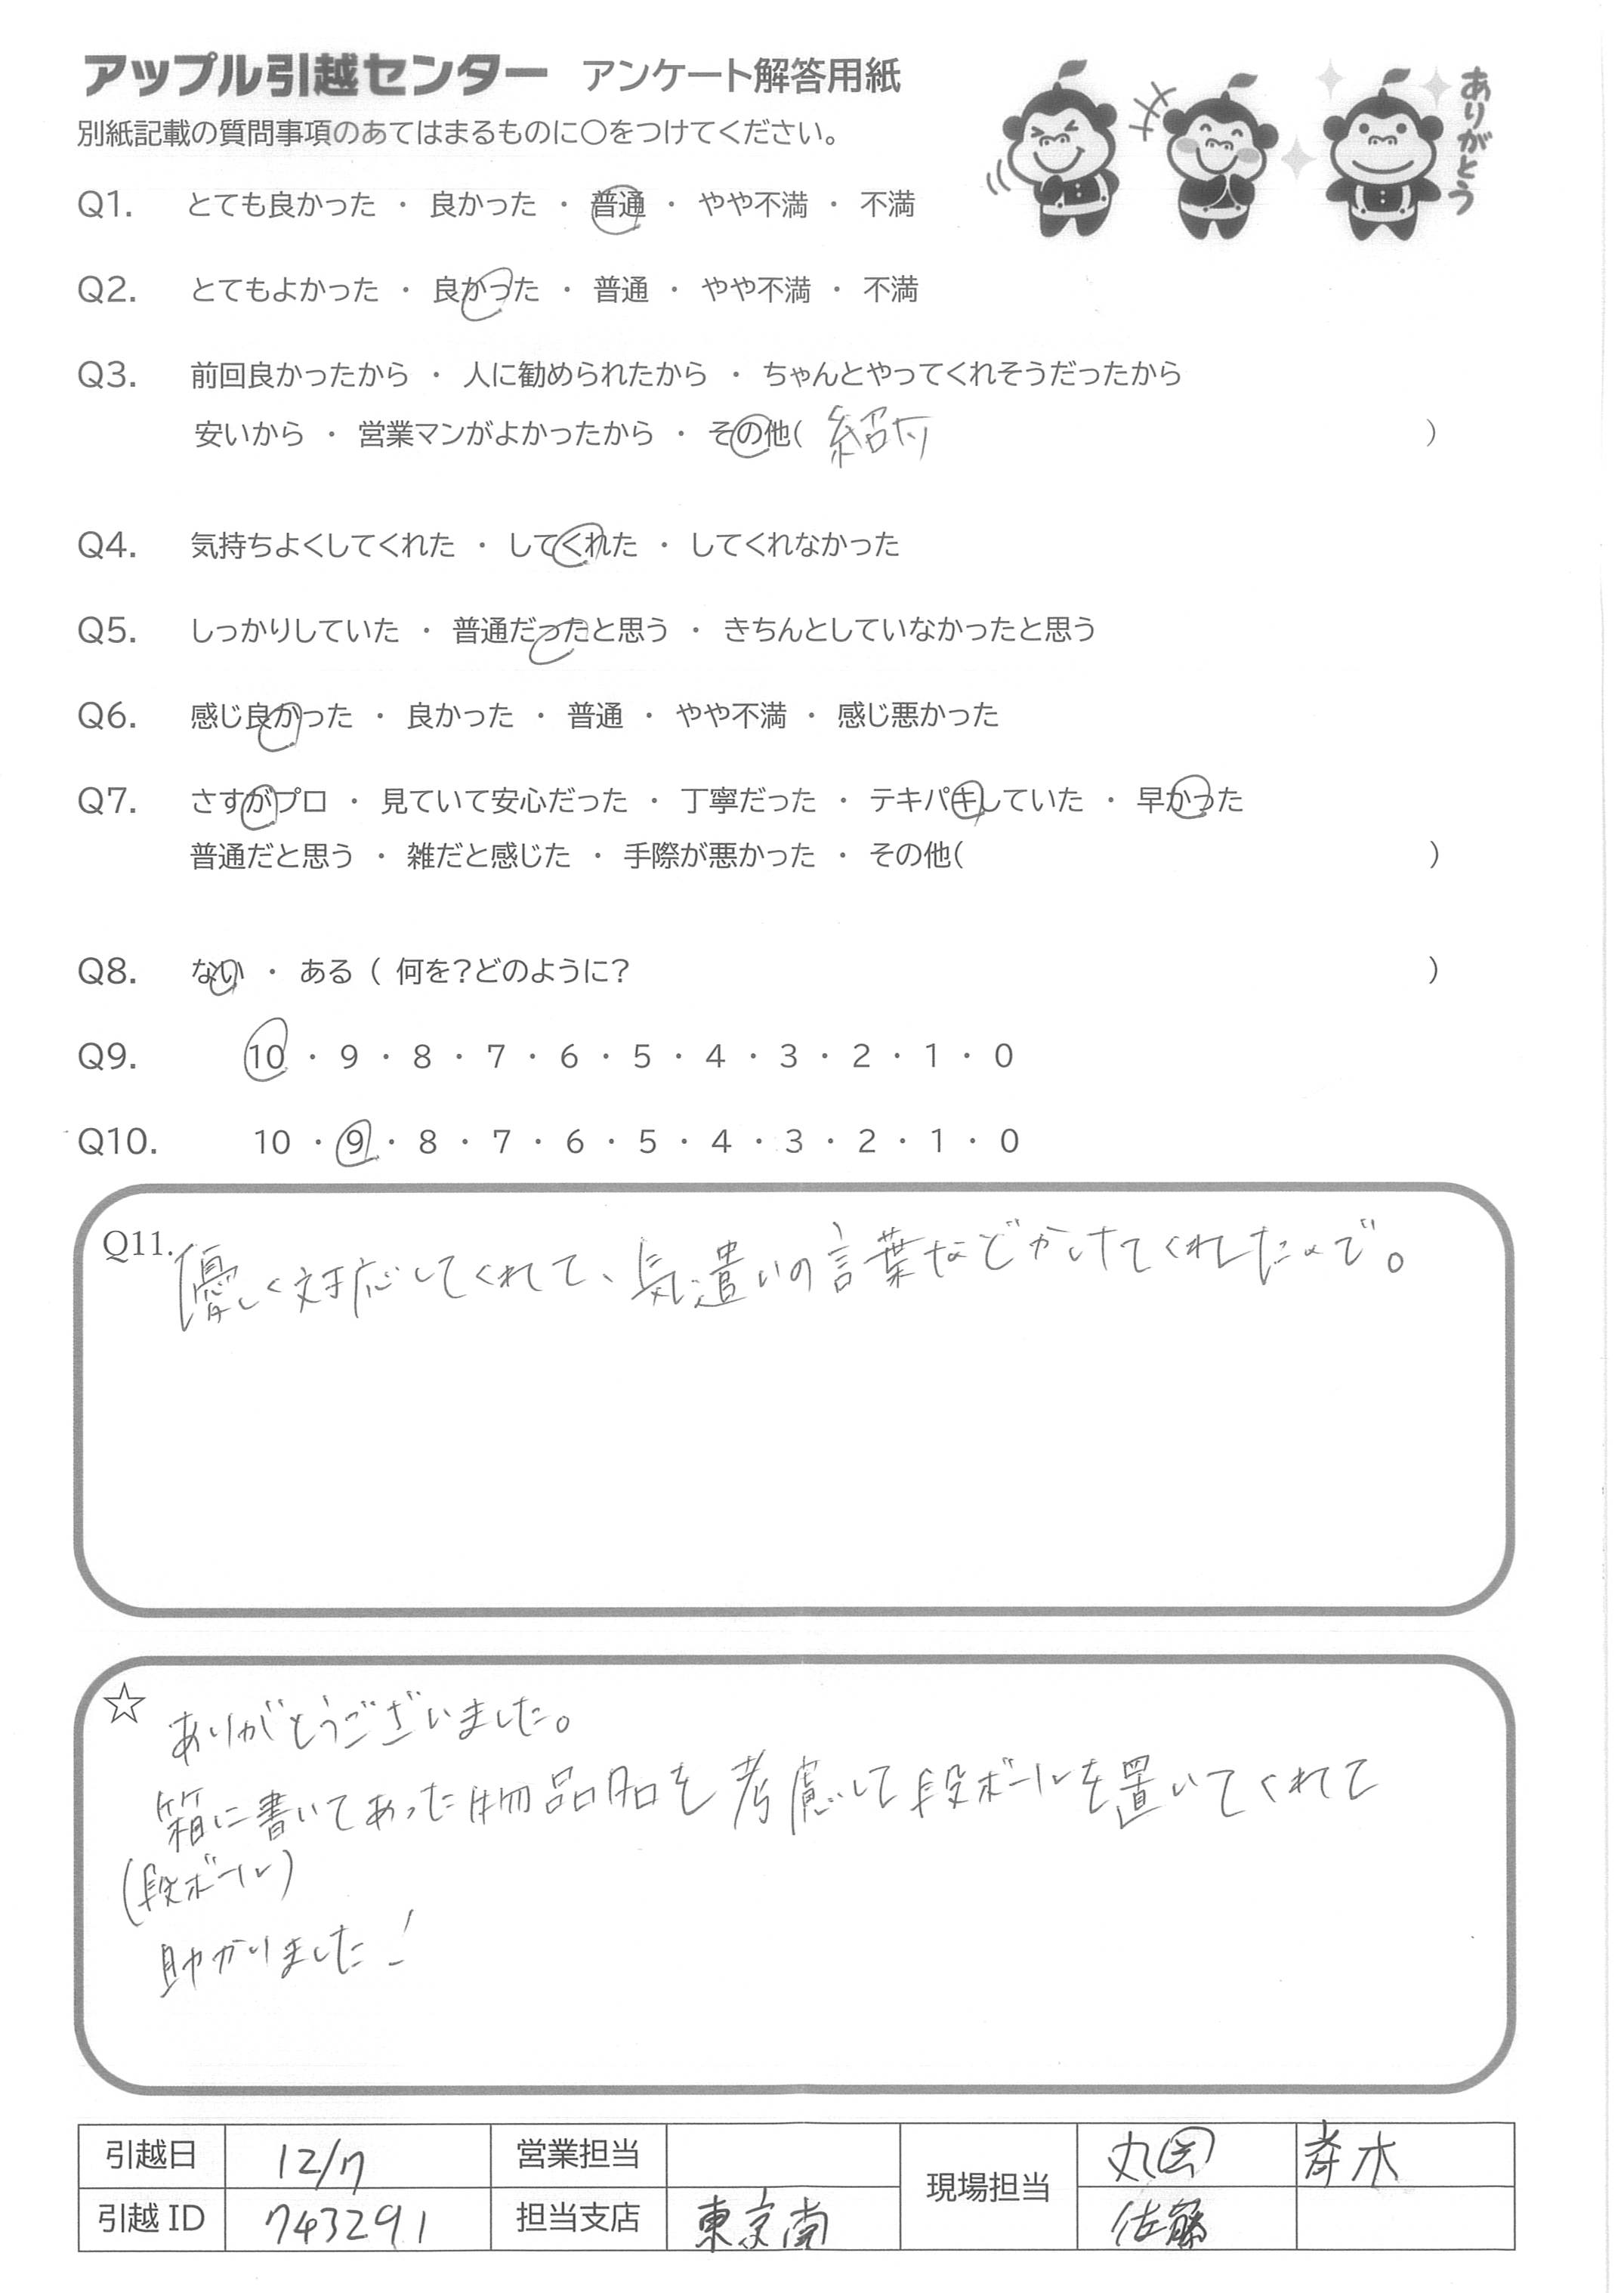 アップル引越センター アンケート解答用紙
ありがとう
別紙記載の質問事項のあてはまるものに〇をつけてください。
Q1. とても良かった ・ 良かった ・ 普通 ・ やや不満 ・ 不満
Q2. とてもよかった ・ 良かった ・ 普通 ・ やや不満 ・ 不満
Q3. 前回良かったから ・ 人に勧められたから ・ ちゃんとやってくれそうだったから
安いから ・ 営業マンがよかったから ・ その他( 紹介 )
Q4. 気持ちよくしてくれた ・ してくれた ・ してくれなかった
Q5. しっかりしていた ・ 普通だったと思う ・ きちんとしていなかったと思う
Q6. 感じ良かった ・ 良かった ・ 普通 ・ やや不満 ・ 感じ悪かった
Q7. さすがプロ ・ 見ていて安心だった ・ 丁寧だった ・ テキパキしていた ・ 早かった
普通だと思う ・ 雑だと感じた ・ 手際が悪かった ・ その他( )
Q8. ない ・ ある ( 何を？どのように？ )
Q9. 10 ・ 9 ・ 8 ・ 7 ・ 6 ・ 5 ・ 4 ・ 3 ・ 2 ・ 1 ・ 0
Q10. 10 ・ 9 ・ 8 ・ 7 ・ 6 ・ 5 ・ 4 ・ 3 ・ 2 ・ 1 ・ 0
Q11. 優しく対応してくれて、気遣いの言葉などかけてくれたので。
☆ ありがとうございました。
箱に書いてあった物品名を考慮して段ボールを置いてくれて
(段ボール)
助かりました！
引越日 12/7 営業担当 現場担当 丸岡 斉木
引越 ID 743291 担当支店 東京南 佐藤